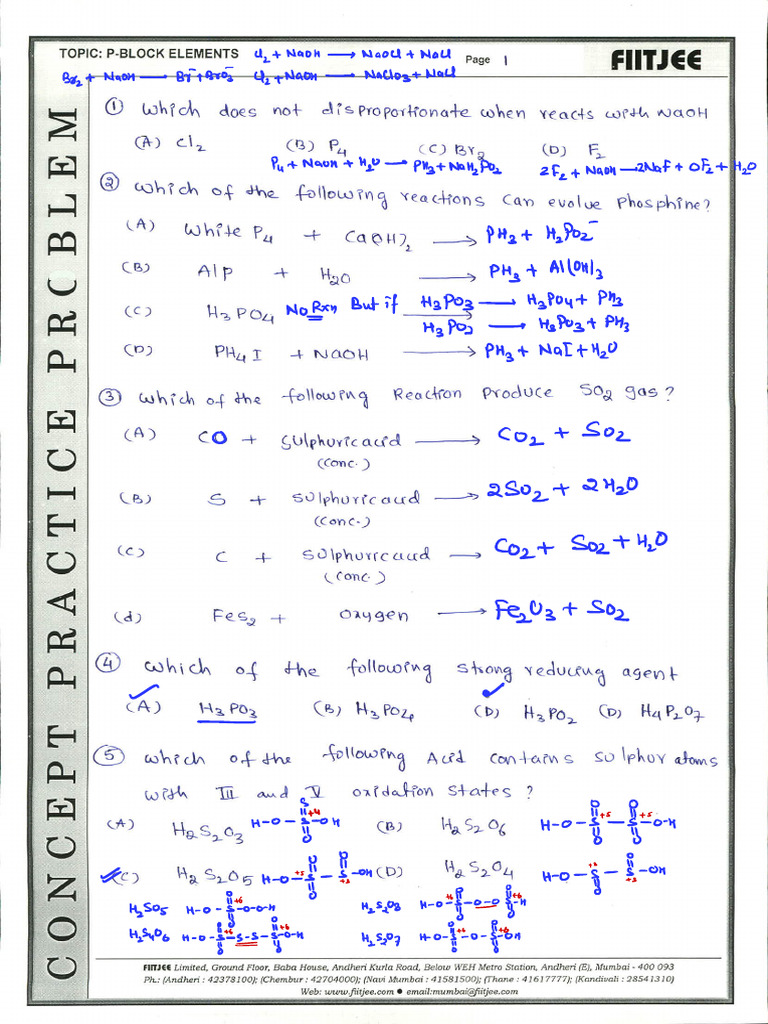 TOPIC: P-BLOCK ELEMENTS Cl2 + NaOH → NaOCl + NaCl Page 1 FIITJEE
Br2 + NaOH → Br⁻ + BrO3⁻ Cl2 + NaOH → NaClO3 + NaCl
CONCEPT PRACTICE PROBLEM
① Which does not disproportionate when reacts with NaOH
(A) Cl2 (B) P4 (C) Br2 (D) F2
P4 + NaOH + H2O → PH3 + NaH2PO2 2F2 + NaOH → 2NaF + OF2 + H2O
② Which of the following reactions can evolve Phosphine?
(A) White P4 + Ca(OH)2 → PH3 + H2PO2⁻
(B) Alp + H2O → PH3 + Al(OH)3
(C) H3PO4 No Rxn But if H3PO3 → H3PO4 + PH3
H3PO2 → H3PO3 + PH3
(D) PH4I + NaOH → PH3 + NaI + H2O
③ Which of the following Reaction Produce SO2 gas?
(A) CO + Sulphuric acid → CO2 + SO2
(conc.)
(B) S + Sulphuric acid → 2SO2 + 2H2O
(conc.)
(C) C + Sulphuric acid → CO2 + SO2 + H2O
(conc.)
(d) FeS2 + Oxygen → Fe2O3 + SO2
④ Which of the following strong reducing agent
(A) H3PO3 (B) H3PO4 (D) H3PO2 (D) H4P2O7
⑤ Which of the following Acid contains sulphur atoms
with III and V oxidation states?
(A) H2S2O3 H-O-S-OH S O +4 (B) H2S2O6 H-O-S-S-O-H O O O O +5 +5
(C) H2S2O5 H-O-S-S-OH O O O +5 +3 (D) H2S2O4 H-O-S-S-OH O O +3
H2SO5 H-O-S-O-O-H O O +6 H2S2O8 H-O-S-O-O-S-H O O O O +6 +6
H2S4O6 H-O-S-S-S-S-O-H O O O O +6 +6 H2S2O7 H-O-S-O-S-OH O O O O +6 +6
FIITJEE Limited, Ground Floor, Baba House, Andheri Kurla Road, Below WEH Metro Station, Andheri (E), Mumbai - 400 093
Ph.: (Andheri : 42378100); (Chembur : 42704000); (Navi Mumbai : 41581500); (Thane : 41617777); (Kandivali : 28541310)
Web: www.fiitjee.com ● email:mumbai@fiitjee.com